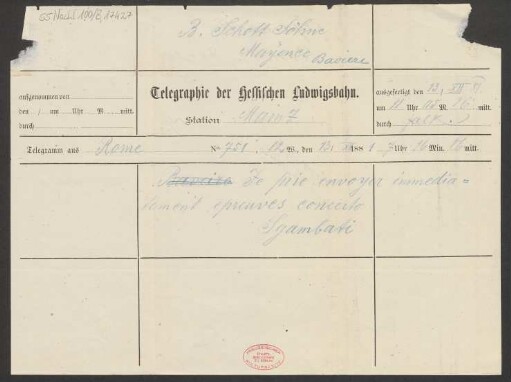 B. Schott Söhne
Mayence
Baviere
aufgenommen von
den / um Uhr M. mitt.
durch
Telegraphie der Hessischen Ludwigsbahn.
Station Mainz
ausgefertigt den 12/XII
um 11 Uhr M. mitt.
durch
Telegramm aus Rome No 721 12 W., den 12 1881 Uhr Min. mitt.
Je prie envoyer immedia-
tement epreuves concerto
Sgambati